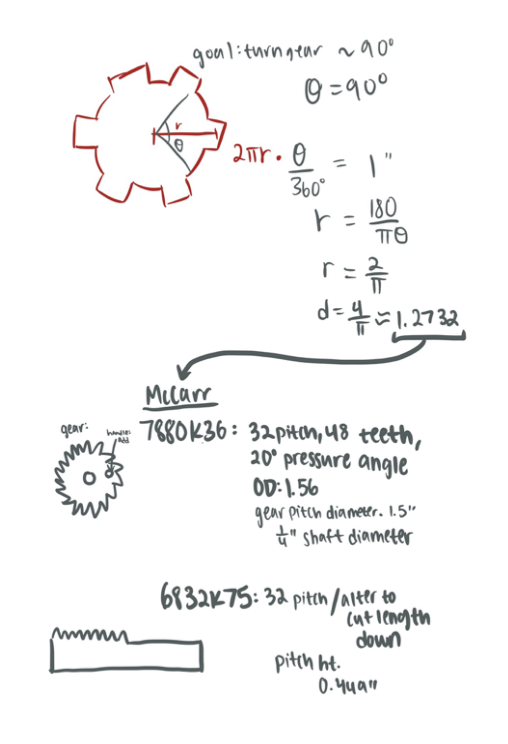 goal: turn gear ~90°
θ = 90°
r
θ
2πr · θ/360° = 1"
r = 180/πθ
r = 2/π
d = 4/π ≈ 1.2732
McCarr
gear:
7880K36: 32 pitch, 48 teeth,
20° pressure angle
OD: 1.56
gear pitch diameter. 1.5"
1/4" shaft diameter
6832K75: 32 pitch/alter to
cut length
down
pitch ht.
0.449"